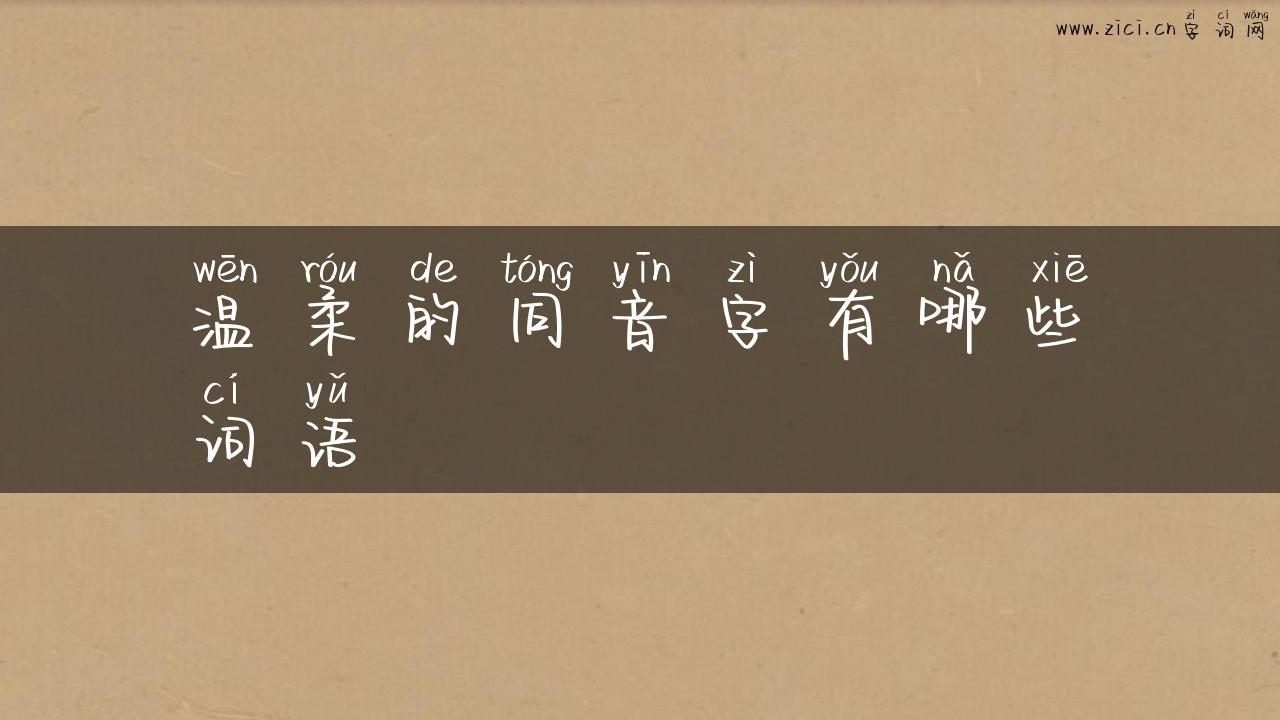 zì cí wǎng
www.zici.cn 字词网
wēn róu de tóng yīn zì yǒu nǎ xiē
温柔的同音字有哪些
cí yǔ
词语